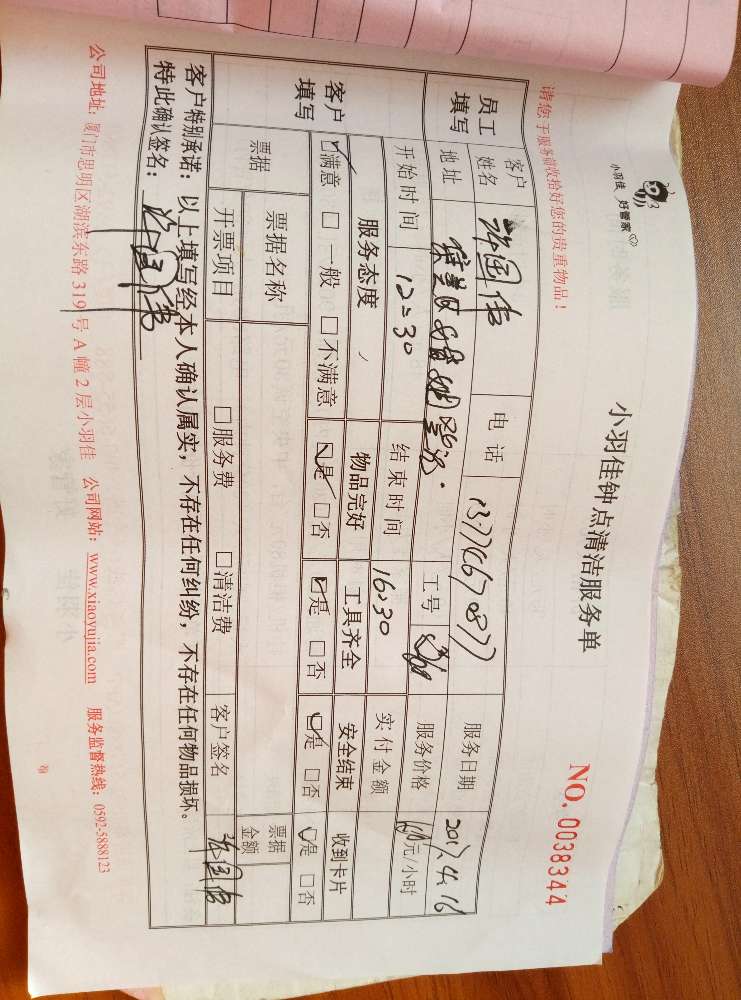 小羽佳 好管家
小羽佳钟点清洁服务单
NO. 0038344
请您于服务前收拾好您的贵重物品!
员工填写
客户姓名 许国伟 电话 服务日期 2017.4.16
地址 工号 服务价格 元/小时
开始时间 12:30 结束时间 16:30 实付金额
客户填写
服务态度 物品完好 工具齐全 安全结束 收到卡片
☑满意 □一般 □不满意 ☑是 □否 ☑是 □否 ☑是 □否 ☑是 □否
票据 票据名称 票据金额
开票项目 □服务费 □清洁费 客户签名 许国伟
客户特别承诺:以上填写经本人确认属实,不存在任何纠纷,不存在任何物品损坏。
特此确认签名:许国伟
公司地址:厦门市思明区湖滨东路 319 号 A 幢 2 层小羽佳 公司网站:www.xiaoyujia.com 服务监督热线:0592-5888123